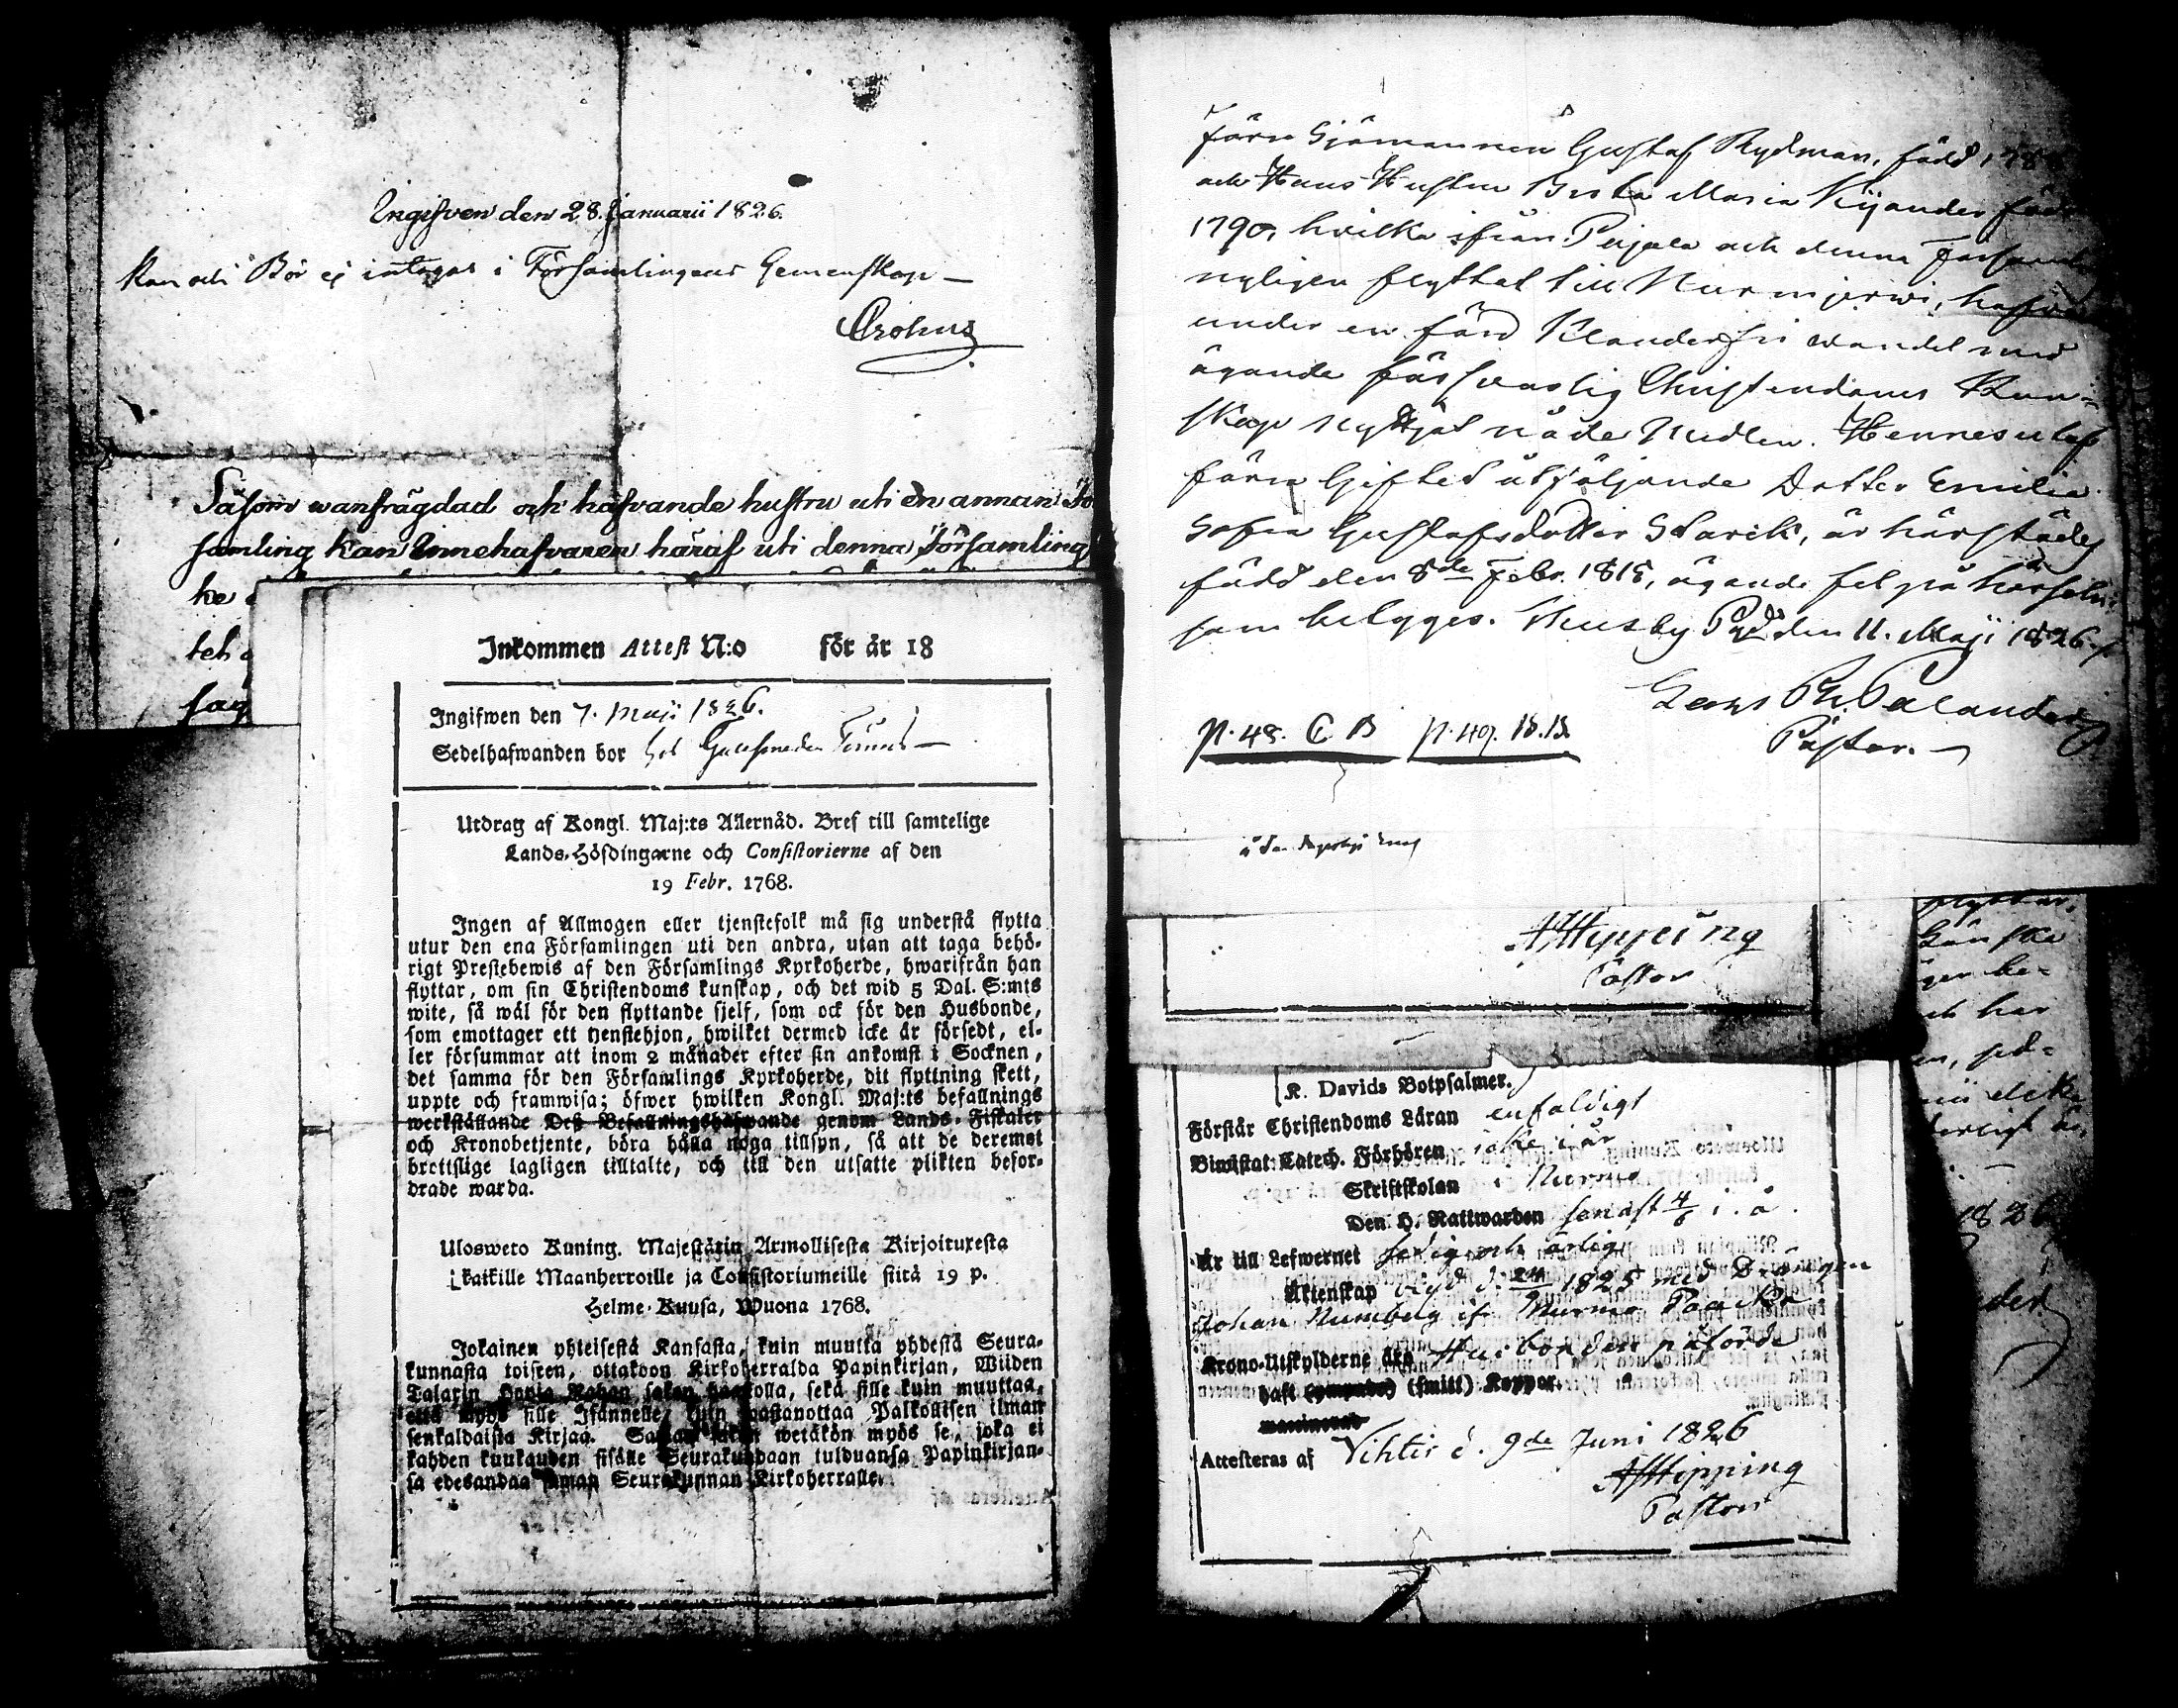 Ingifven den 28. Januarii 1826.
Kan och Bör ej intagas i Församlingens Gemenskap —
Crohns
Såsom wanfrägdad och hafvande hustru uti en annan För
samling kan Innehafvaren häraf uti denna Församling
ke
teh
sag
Inkommen Attest N:o för år 18
Ingifwen den 7. Maji 1826.
Sedelhafwanden bor hos
Utdrag af Kongl. Maj:ts Allernåd. Bref till samtelige
Lands-Höfdingarne och Consistorierne af den
19 Febr. 1768.
Ingen af Allmogen eller tjenstefolk må sig understå flytta
utur den ena Församlingen uti den andra, utan att taga behö-
rigt Prestebewis af den Församlings Kyrkoherde, hwarifrån han
flyttar, om sin Christendoms kunskap, och det wid 5 Dal. S:mts
wite, så wäl för den flyttande sjelf, som ock för den Husbonde,
som emottager ett tjenstehjon, hwilket dermed icke är försedt, el-
ler försummar att inom 2 månader efter sin ankomst i Socknen,
det samma för den Församlings Kyrkoherde, dit flyttning skett,
uppte och framwisa; öfwer hwilken Kongl. Maj:ts befallnings
werkställande Dess Befallningshafwande genom Lands-Fiskaler
och Kronobetjente, böra hålla noga tillsyn, så att de deremot
brottslige lagligen tilltalte, och till den utsatte plikten befor-
drade warda.
Ulosweto Kuning. Majestätin Armollisesta Kirjoituxesta
kaikille Maanherroille ja Consistoriumeille siitä 19 p.
Helme-Kuusa, Wuona 1768.
Jokainen yhteisestä Kansasta, kuin muutta yhdestä Seura-
kunnasta toiseen, ottakoon Kirkoherralda Papinkirjan, Wiiden
Talarin Hopia Rahan sakon haastolla, sekä sille kuin muuttaa,
että myös sille Isännelle, kuin wastanottaa Palkollisen ilman
senkaldaista Kirjaa. Saman sakon wetäkön myös se, joka ei
kahden kuukauden sisälle Seurakundaan tulduansa Papinkirjan-
sa edesandaa saman Seurakunnan Kirkoherralle.
Förre Sjömannen Gustaf Rydman, född 178
och Hans Hustru Brita Maria Kijander född
1790, hvilka ifrån Pusula och denna Församl
nyligen flyttat till Nurmijerwi, hafva
under en förd Klanderfri wandel med
ägande försvarlig Christendoms Kun-
skap nyttjat nåde Medlen. Hennes utaf
förra Giftet åtföljande Dotter Emilia
Sofia Gustafsdotter Starck, är härstädes
född den 8de Febr. 1818, ägande fel på hörseln
som belygges. Nusby Pgd den 11. Maji 1826.
Palander
Pastor.
p. 48. C B p. 49. B.B.
AFHipping
Pastor
K. Davids Botpsalmer.
Förstår Christendoms Läran enfaldigt
Biwistat Catech. Förhören icke i år
Skriftskolan i Nurmis
Den H. Nattwarden senast 4/6 i. å.
Är till Lefwernet sedig och ärlig
Äktenskap vigd d. 1825 med Drängen
Johan Numberg ifr. Nurmis
Krono-Utskylderne äro Husbonden påförde
haft (smitt) Koppor.
Attesteras af Vihtis d. 9de Juni 1826
AFHipping
Pastor
flyttar,
Ganska
ger be-
ch har
1826
der